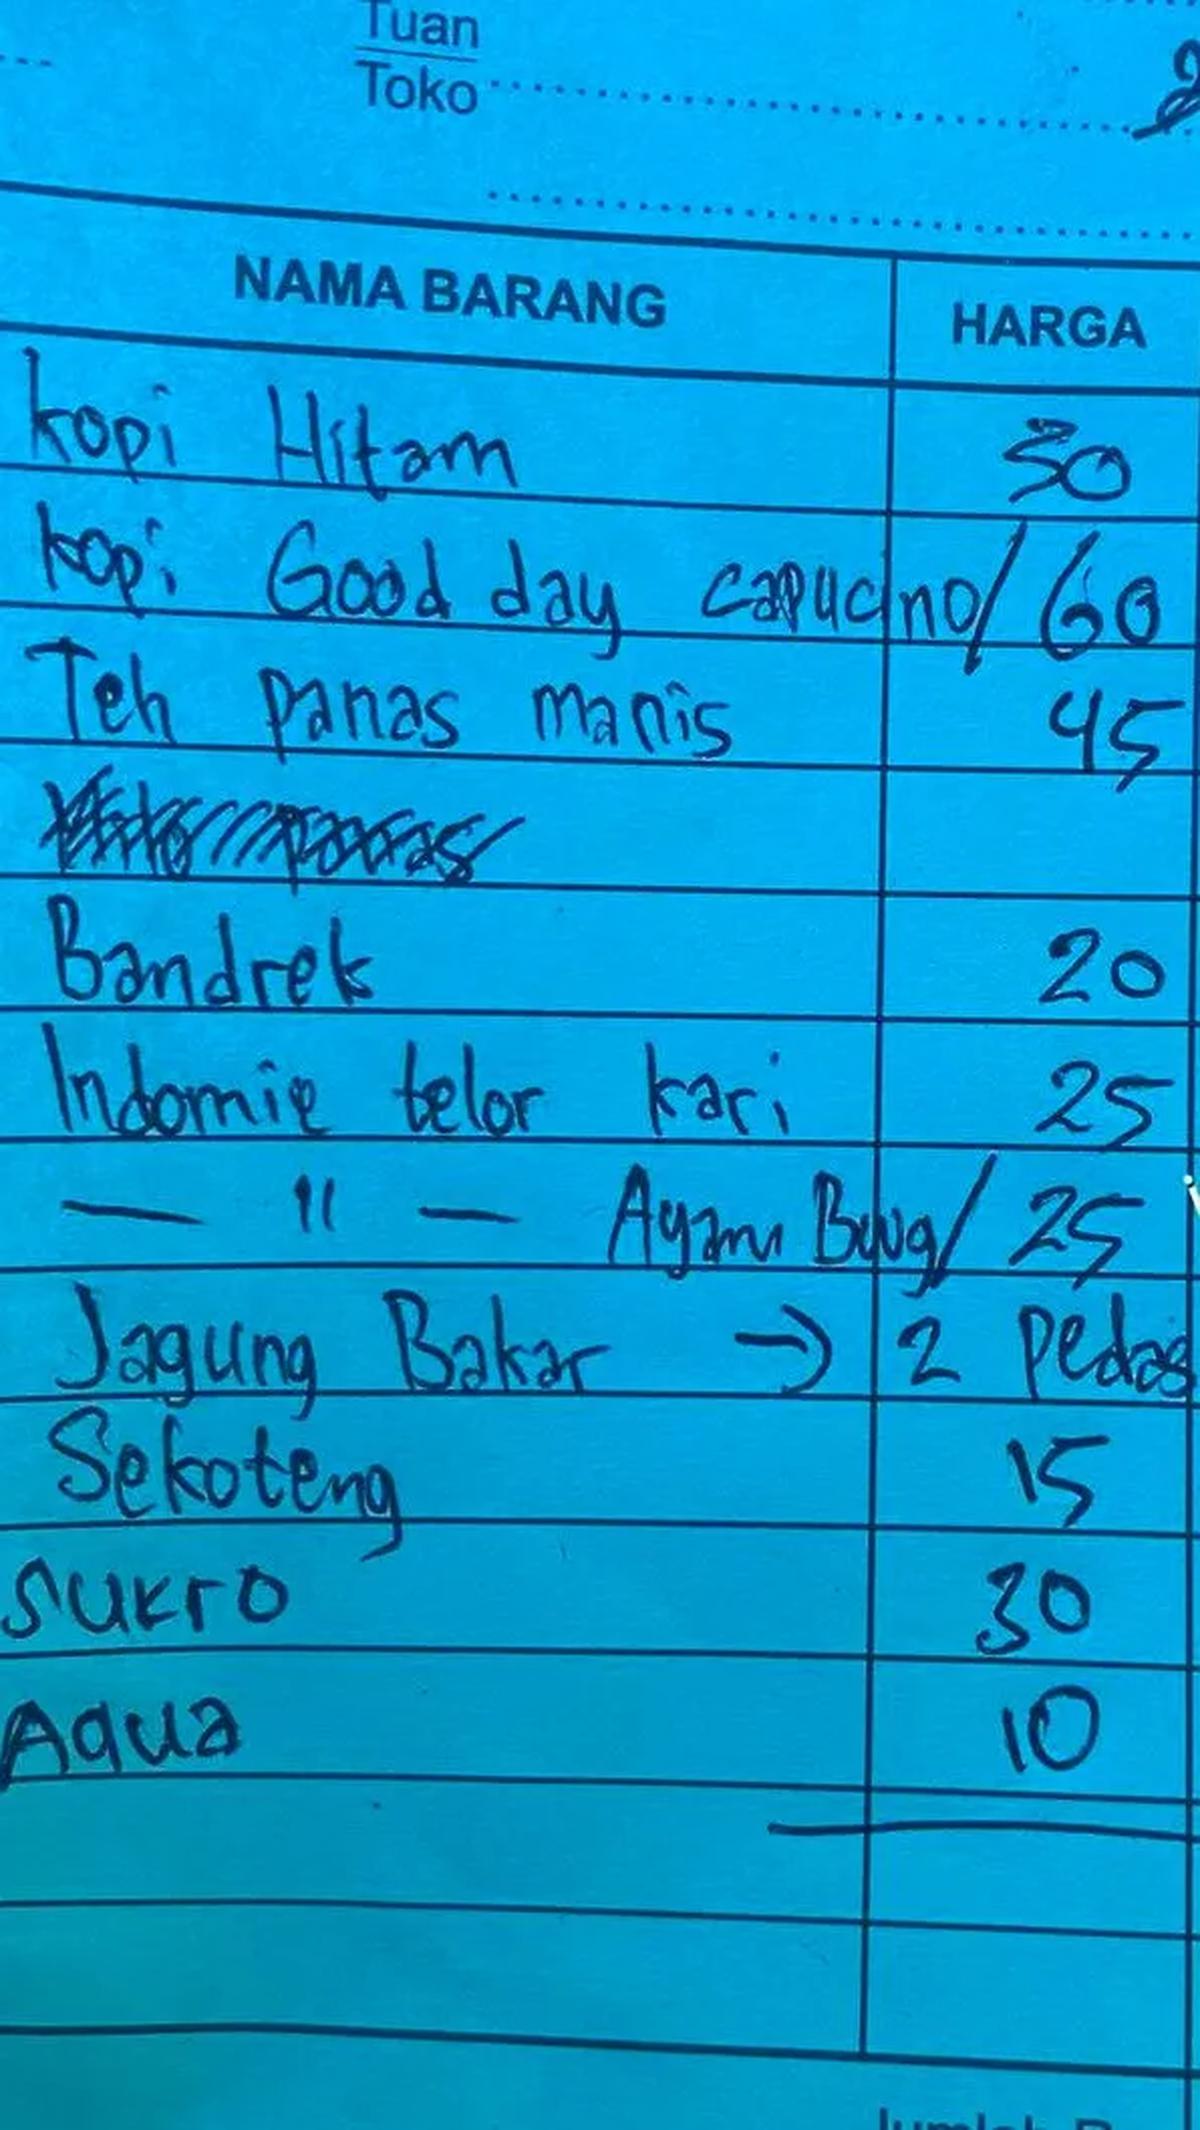 Tuan
Toko
NAMA BARANG HARGA
kopi Hitam 30
kopi Good day capucino/ 60
Teh panas manis 45
Bandrek 20
Indomie telor kari 25
— " — Ayam Bwg/ 25
Jagung Bakar → 2 pedas
Sekoteng 15
Sukro 30
Aqua 10